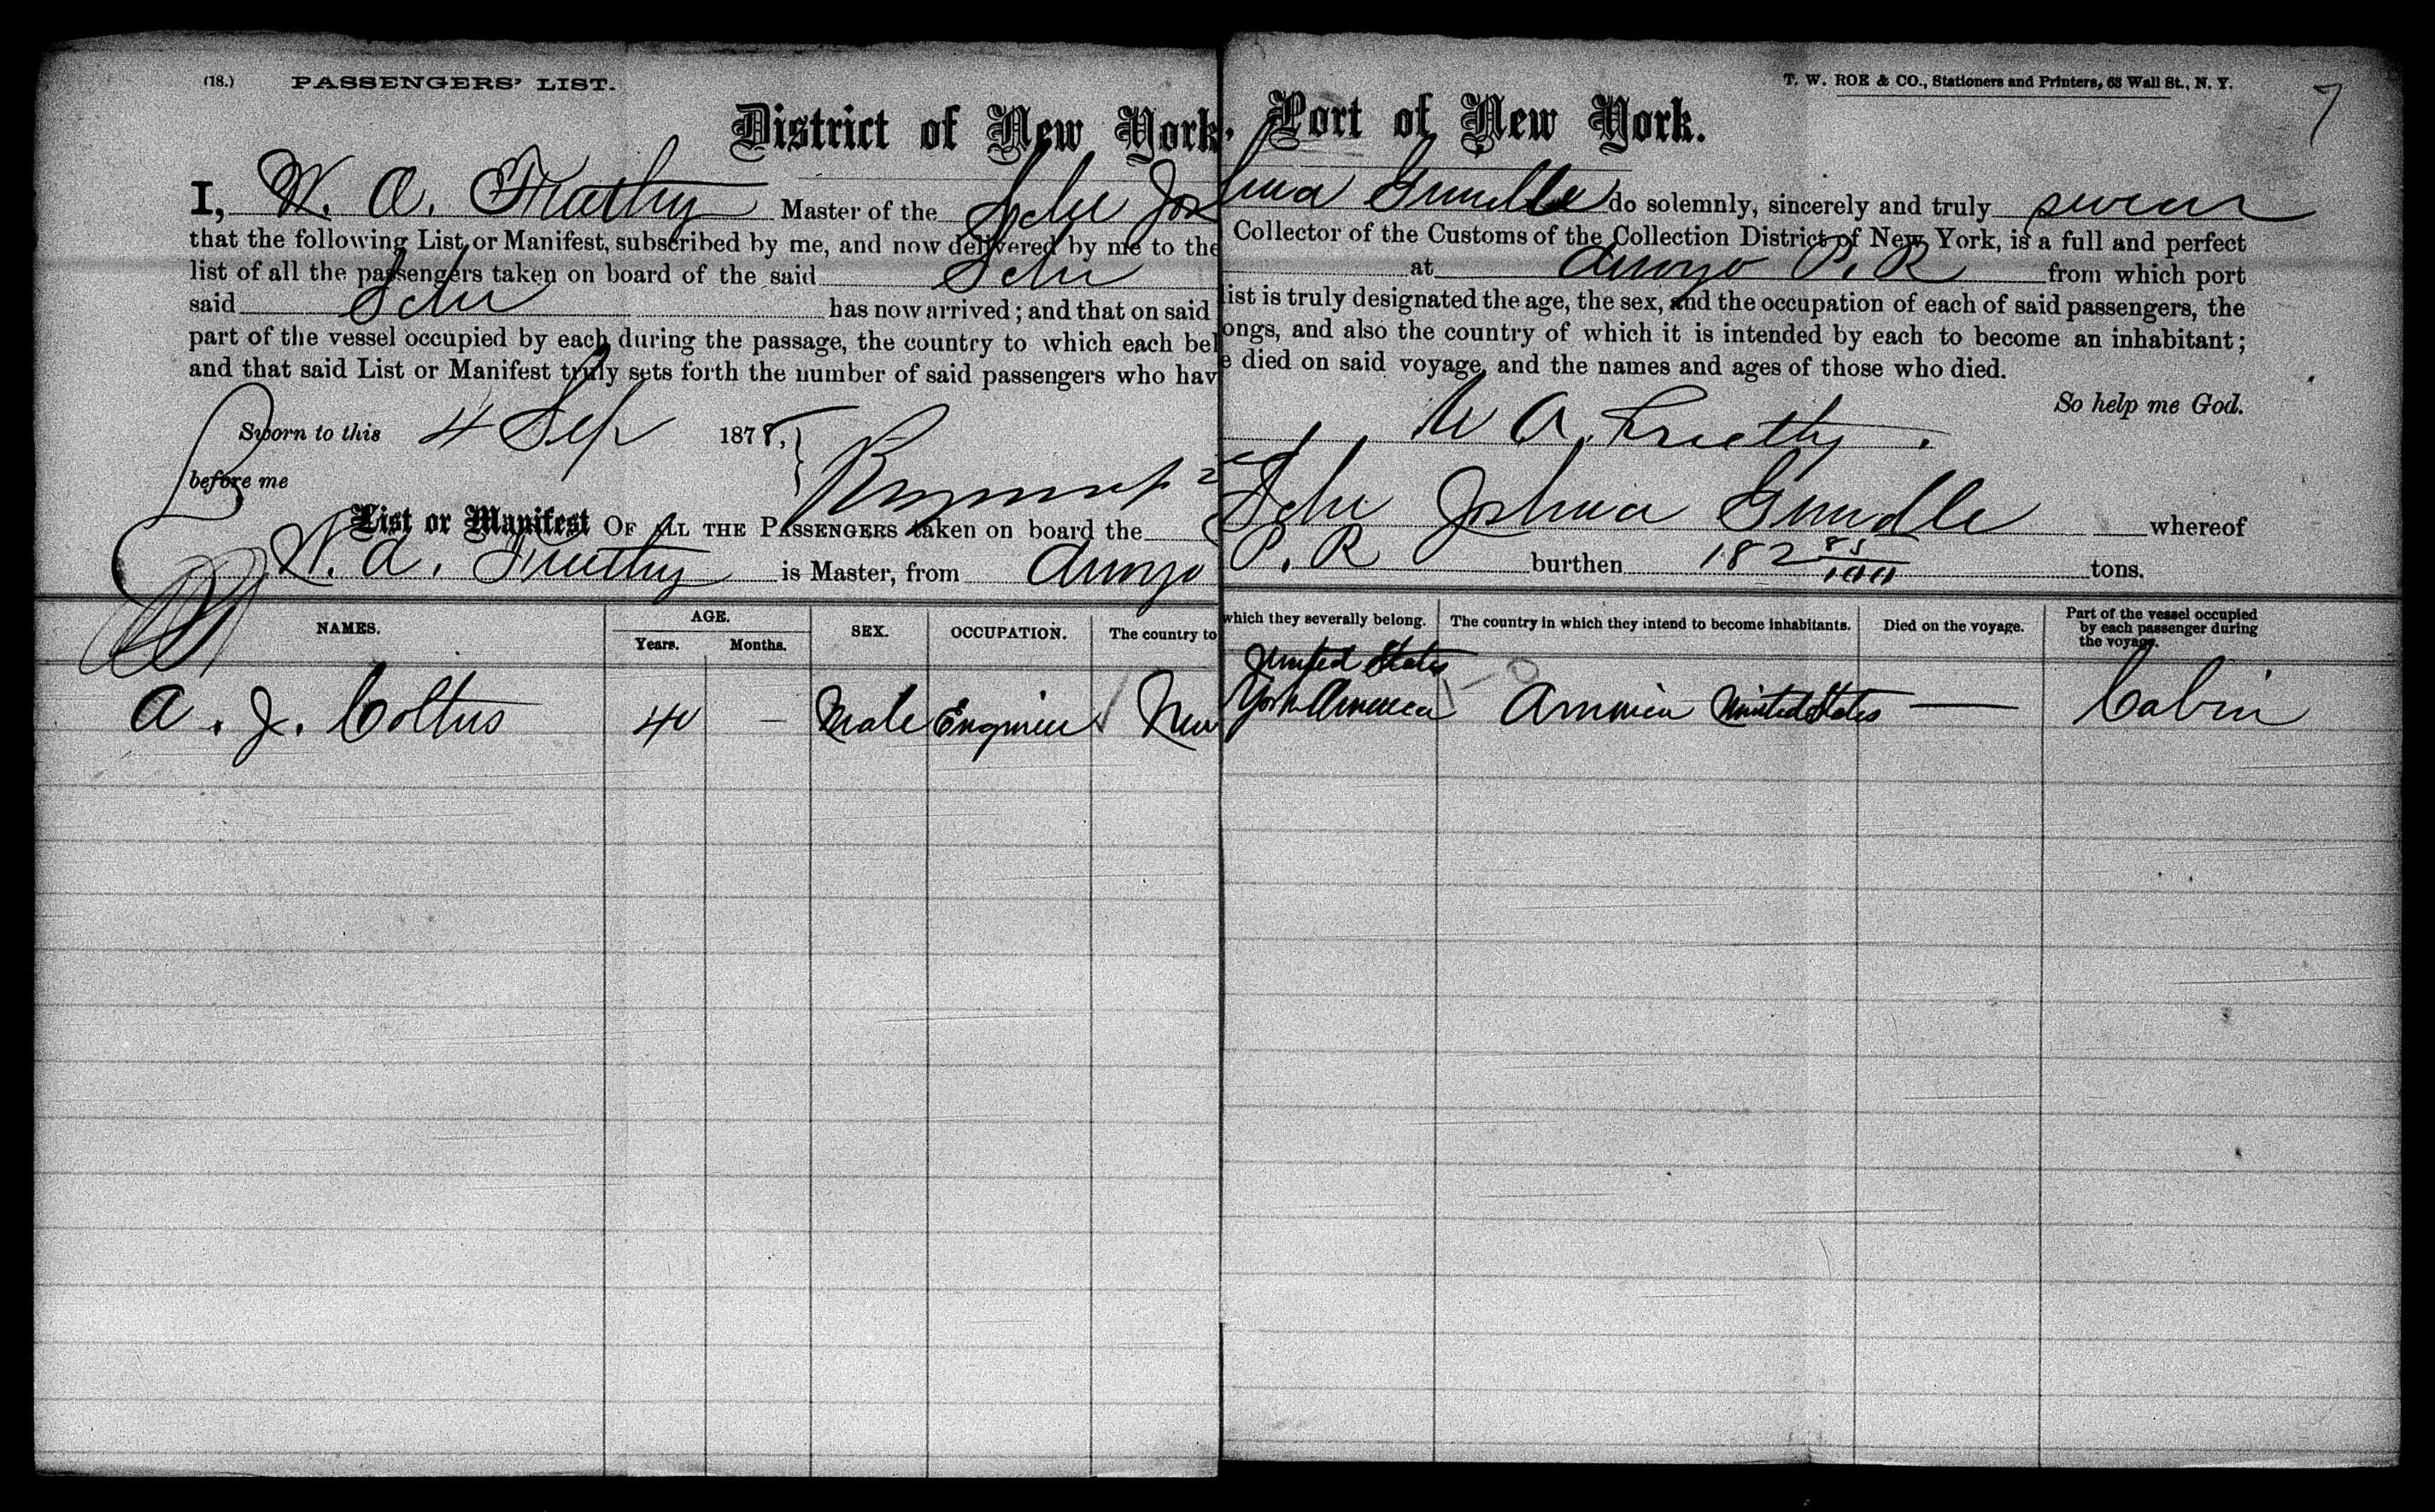 (18.) PASSENGERS' LIST. T. W. ROE & CO., Stationers and Printers, 63 Wall St., N. Y. 7
District of New York, Port of New York.
I, W. A. Master of the Schr Joshua Grindle do solemnly, sincerely and truly swear
that the following List or Manifest, subscribed by me, and now delivered by me to the Collector of the Customs of the Collection District of New York, is a full and perfect
list of all the passengers taken on board of the said Schr at Arroyo P. R from which port
said Schr has now arrived; and that on said list is truly designated the age, the sex, and the occupation of each of said passengers, the
part of the vessel occupied by each during the passage, the country to which each belongs, and also the country of which it is intended by each to become an inhabitant;
and that said List or Manifest truly sets forth the number of said passengers who have died on said voyage, and the names and ages of those who died.
So help me God.
Sworn to this 4 Sep 1878, W A.
before me
List or Manifest OF ALL THE PASSENGERS taken on board the Schr Joshua Grindle whereof
W. A. is Master, from Arroyo P. R burthen 182 85/100 tons.
NAMES. AGE. Years. Months. SEX. OCCUPATION. The country to which they severally belong. The country in which they intend to become inhabitants. Died on the voyage. Part of the vessel occupied by each passenger during the voyage.
United States
A. J. 40 — Male Engineer New York America America United States — Cabin